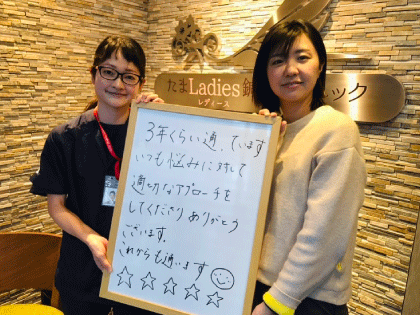 たまLadies鍼
レディース
ック
3年くらい通っています
いつも悩みに対して
適切なアプローチを
してくださり ありがとう
ございます。
これからも通います
☆☆☆☆☆